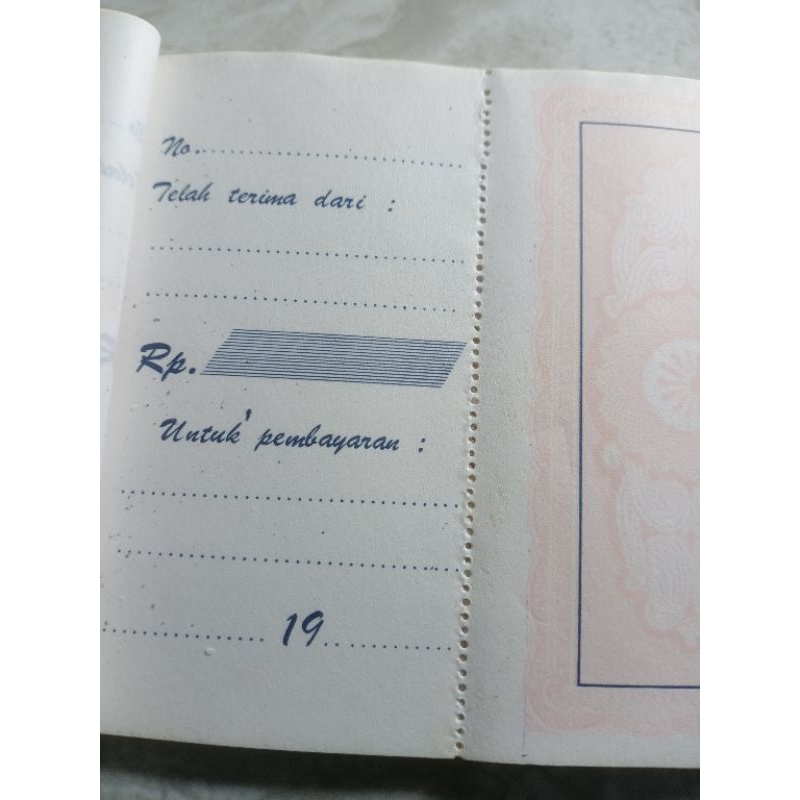 No. ..............................
Telah terima dari :
..............................
..............................
Rp.
Untuk pembayaran :
..............................
..............................
.................... 19 ....................